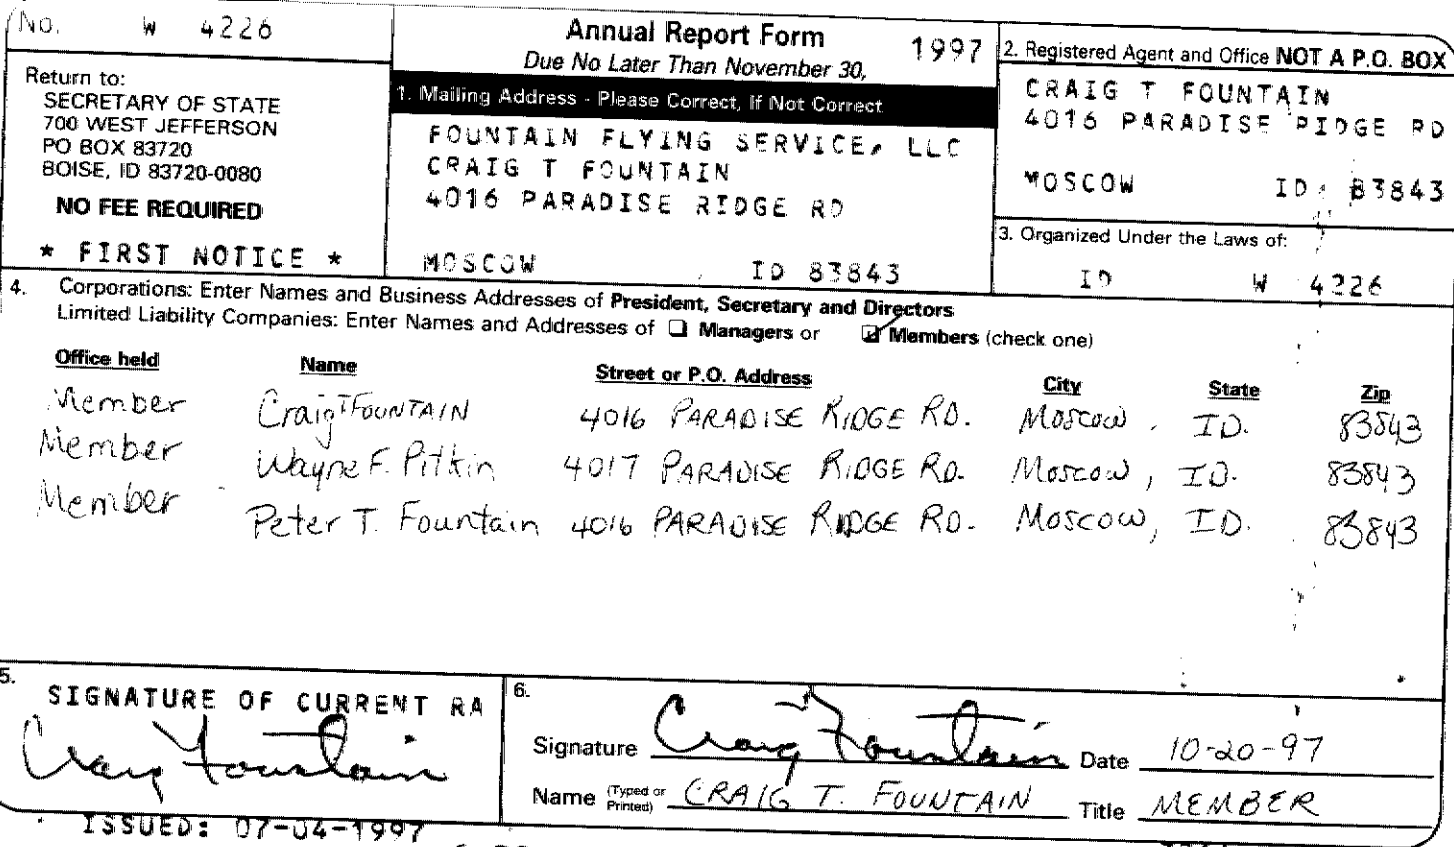 No. W 4226
Annual Report Form 1997
Due No Later Than November 30,
Return to:
SECRETARY OF STATE
700 WEST JEFFERSON
PO BOX 83720
BOISE, ID 83720-0080
NO FEE REQUIRED
* FIRST NOTICE *
1. Mailing Address - Please Correct, If Not Correct
FOUNTAIN FLYING SERVICE, LLC
CRAIG T FOUNTAIN
4016 PARADISE RIDGE RD
MOSCOW ID 83843
2. Registered Agent and Office NOT A P.O. BOX
CRAIG T FOUNTAIN
4016 PARADISE RIDGE RD
MOSCOW ID 83843
3. Organized Under the Laws of:
ID W 4226
4. Corporations: Enter Names and Business Addresses of President, Secretary and Directors
Limited Liability Companies: Enter Names and Addresses of ☐ Managers or ☑ Members (check one)
Office held Name Street or P.O. Address City State Zip
Member Craig T FOUNTAIN 4016 PARADISE RIDGE RD. Moscow, ID. 83843
Member Wayne F. Pitkin 4017 PARADISE RIDGE RD. Moscow, ID. 83843
Member Peter T. Fountain 4016 PARADISE RIDGE RD. Moscow, ID. 83843
5. SIGNATURE OF CURRENT RA
Craig Fountain
6.
Signature Craig Fountain Date 10-20-97
Name (Typed or Printed) CRAIG T. FOUNTAIN Title MEMBER
ISSUED: 07-04-1997